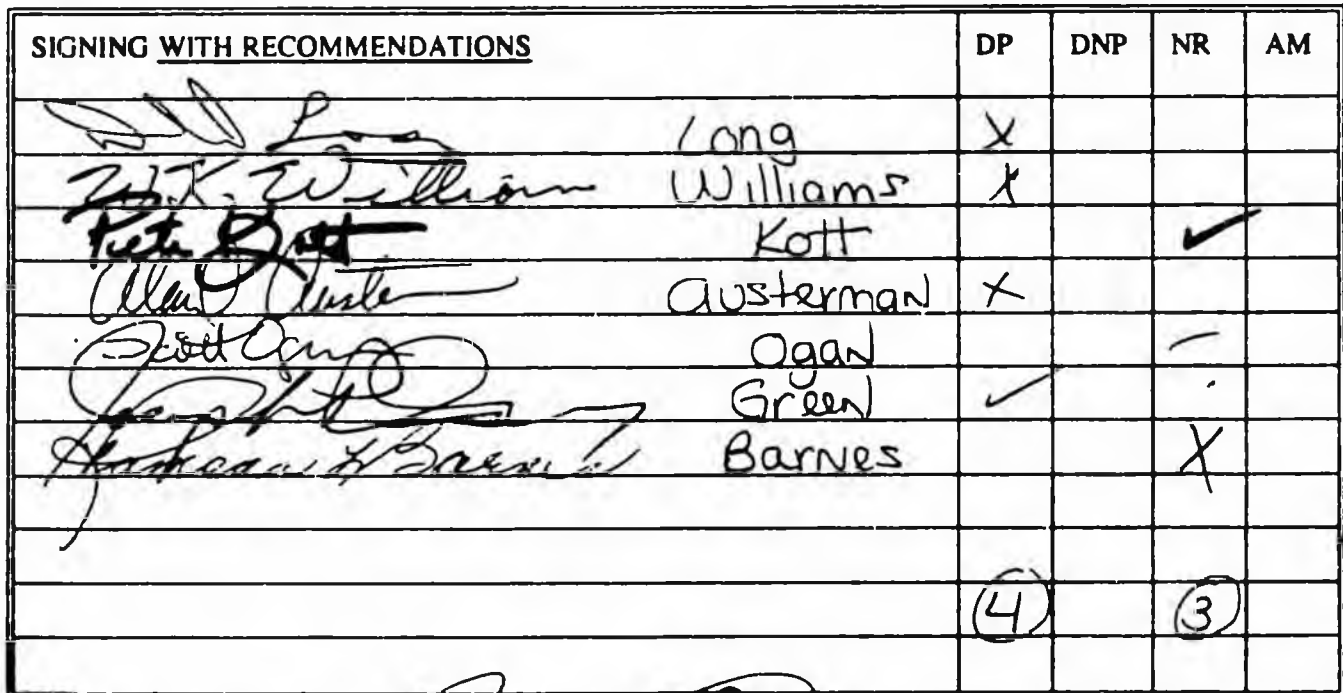 SIGNING WITH RECOMMENDATIONS DP DNP NR AM
Long X
W.K. Williams Williams X
Pete Kott Kott ✓
Alan Austerman Austerman X
Scott Ogan Ogan –
Green ✓
Barnes Barnes X
4 3